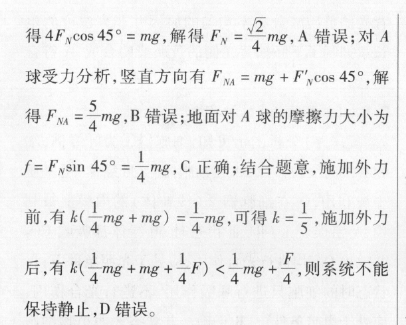 得 4F_N cos 45° = mg,解得 F_N = \frac{\sqrt{2}}{4}mg,A 错误;对 A
球受力分析,竖直方向有 F_{NA} = mg + F'_N cos 45°,解
得 F_{NA} = \frac{5}{4}mg,B 错误;地面对 A 球的摩擦力大小为
f = F_N sin 45° = \frac{1}{4}mg,C 正确;结合题意,施加外力
前,有 k(\frac{1}{4}mg + mg) = \frac{1}{4}mg,可得 k = \frac{1}{5},施加外力
后,有 k(\frac{1}{4}mg + mg + \frac{1}{4}F) < \frac{1}{4}mg + \frac{F}{4},则系统不能
保持静止,D 错误。